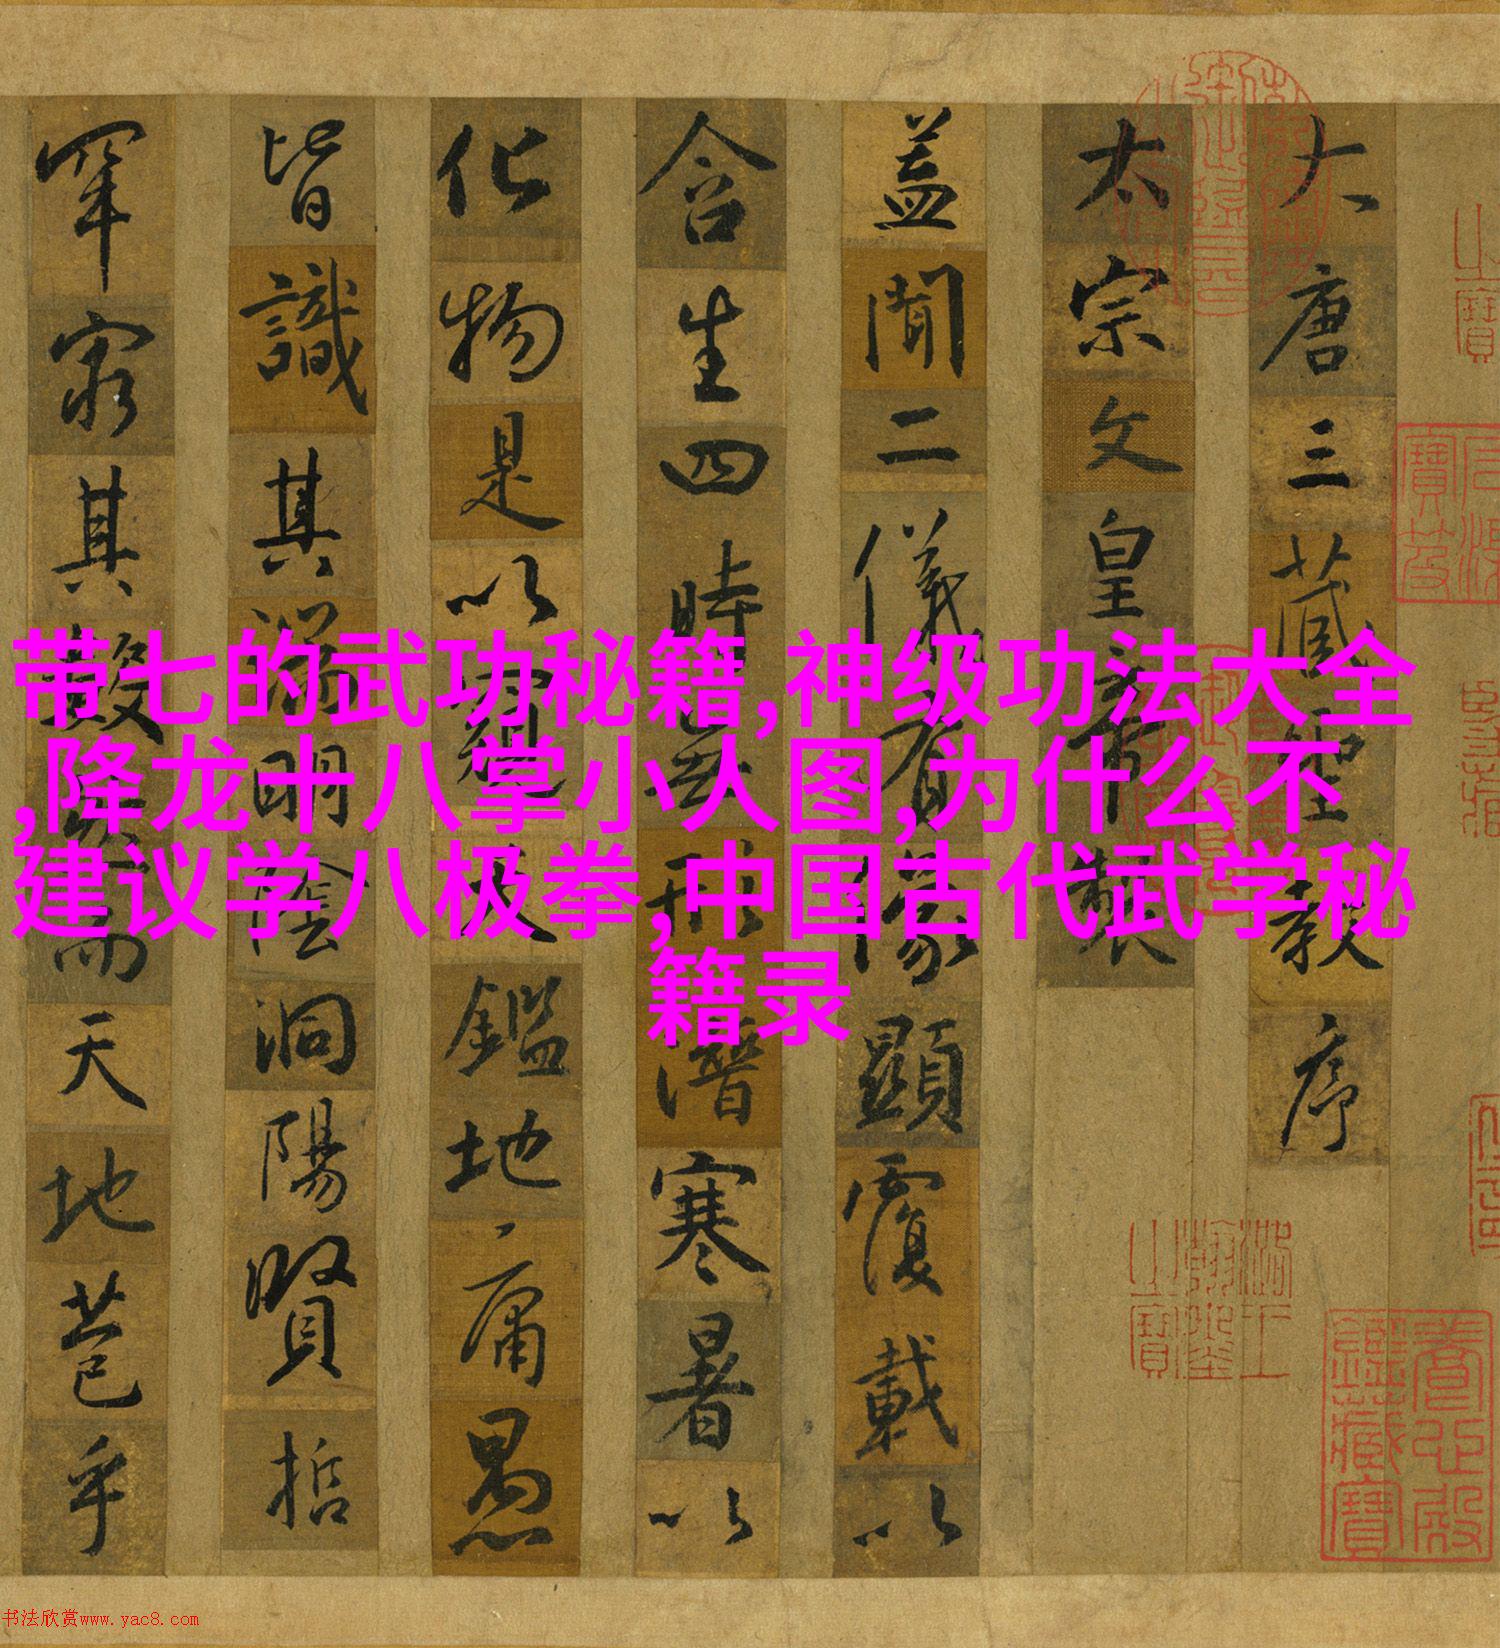 带七的武功秘籍,神级功法大全
,降龙十八掌小人图,为什么不
建议学八极拳,中国古代武学秘
籍录
大唐三藏聖教序
太宗文皇帝製
盖聞二儀有像顯覆載以
含生四時無形潛寒暑以
化物是以窺天鑑地庸愚
皆識其端明陰洞陽賢哲
罕窮其數然而天地苞乎
養心殿鑑藏寶
书法欣赏www.yac8.com